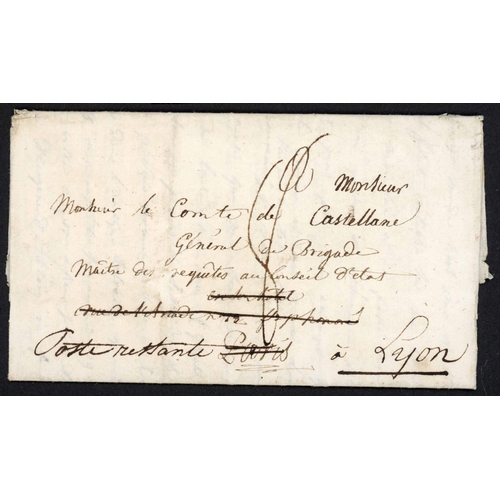 A Monsieur
Monsieur le Comte de Castellane
Général de Brigade
Maître des requêtes au Conseil d'état
rue de
Poste restante Paris à Lyon